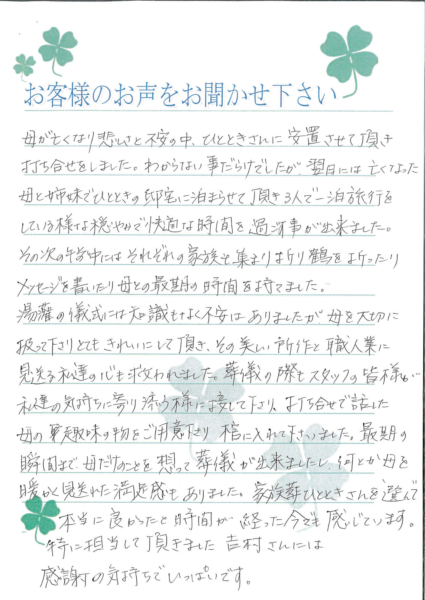 お客様のお声をお聞かせ下さい
母が亡くなり悲しさと不安の中、ひとときさんに安置させて頂き
打ち合せをしました。わからない事だらけでしたが、翌日には亡くなった
母と姉妹でひとときの邸宅に泊まらせて頂き3人で一泊旅行を
している様な穏やかで快適な時間を過ごす事が出来ました。
その次の午前中にはそれぞれの家族も集まり折り鶴を折ったり
メッセージを書いたり母との最期の時間を持てました。
湯灌の儀式には知識もなく不安はありましたが母を大切に
扱って下さりとてもきれいにして頂き、その美しい所作と職人業に
見送る私達の心も救われました。葬儀の際もスタッフの皆様が
私達の気持ちに寄り添う様に接して下さり、打ち合せで話した
母の趣味の物をご用意下さり棺に入れて下さいました。最期の
瞬間まで母だけのことを想って葬儀が出来ましたし、何とか母を
暖かく見送れた満足感もありました。家族葬ひとときさんを選んで
本当に良かったと時間が経った今でも感じています。
特に担当して頂きました吉村さんには
感謝の気持ちでいっぱいです。